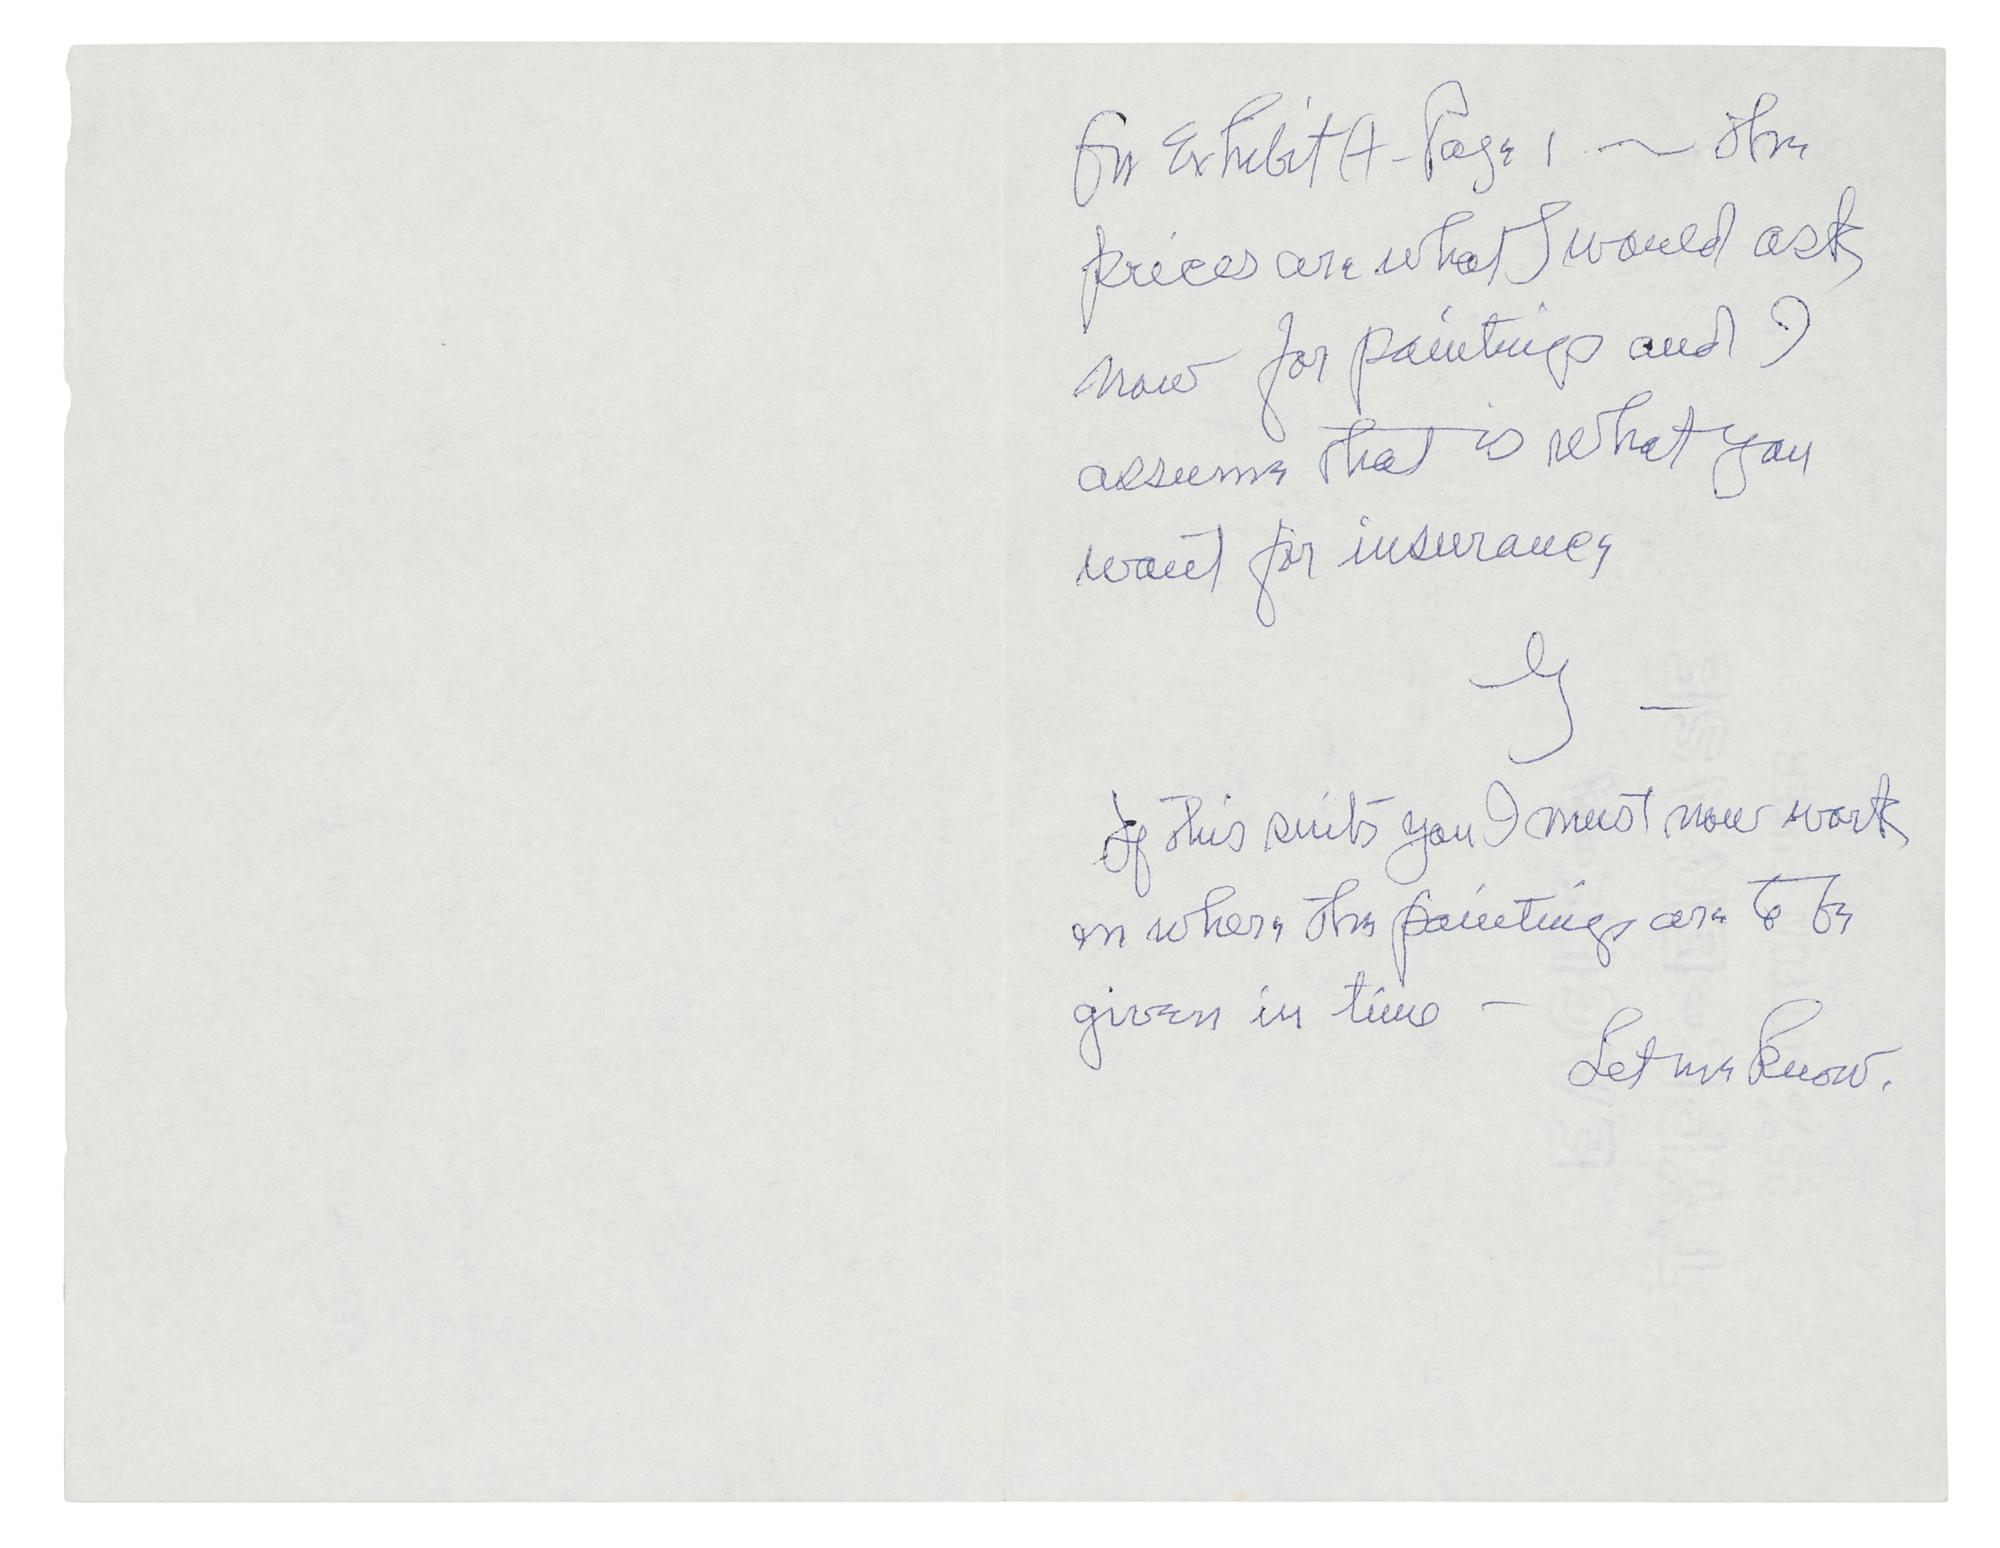 For Exhibit A - Page 1 ~ the
prices are what I would ask
now for paintings and I
assume that is what you
want for insurance
G —
If this suits you I must now work
on where the paintings are to be
given in time —
Let me know.